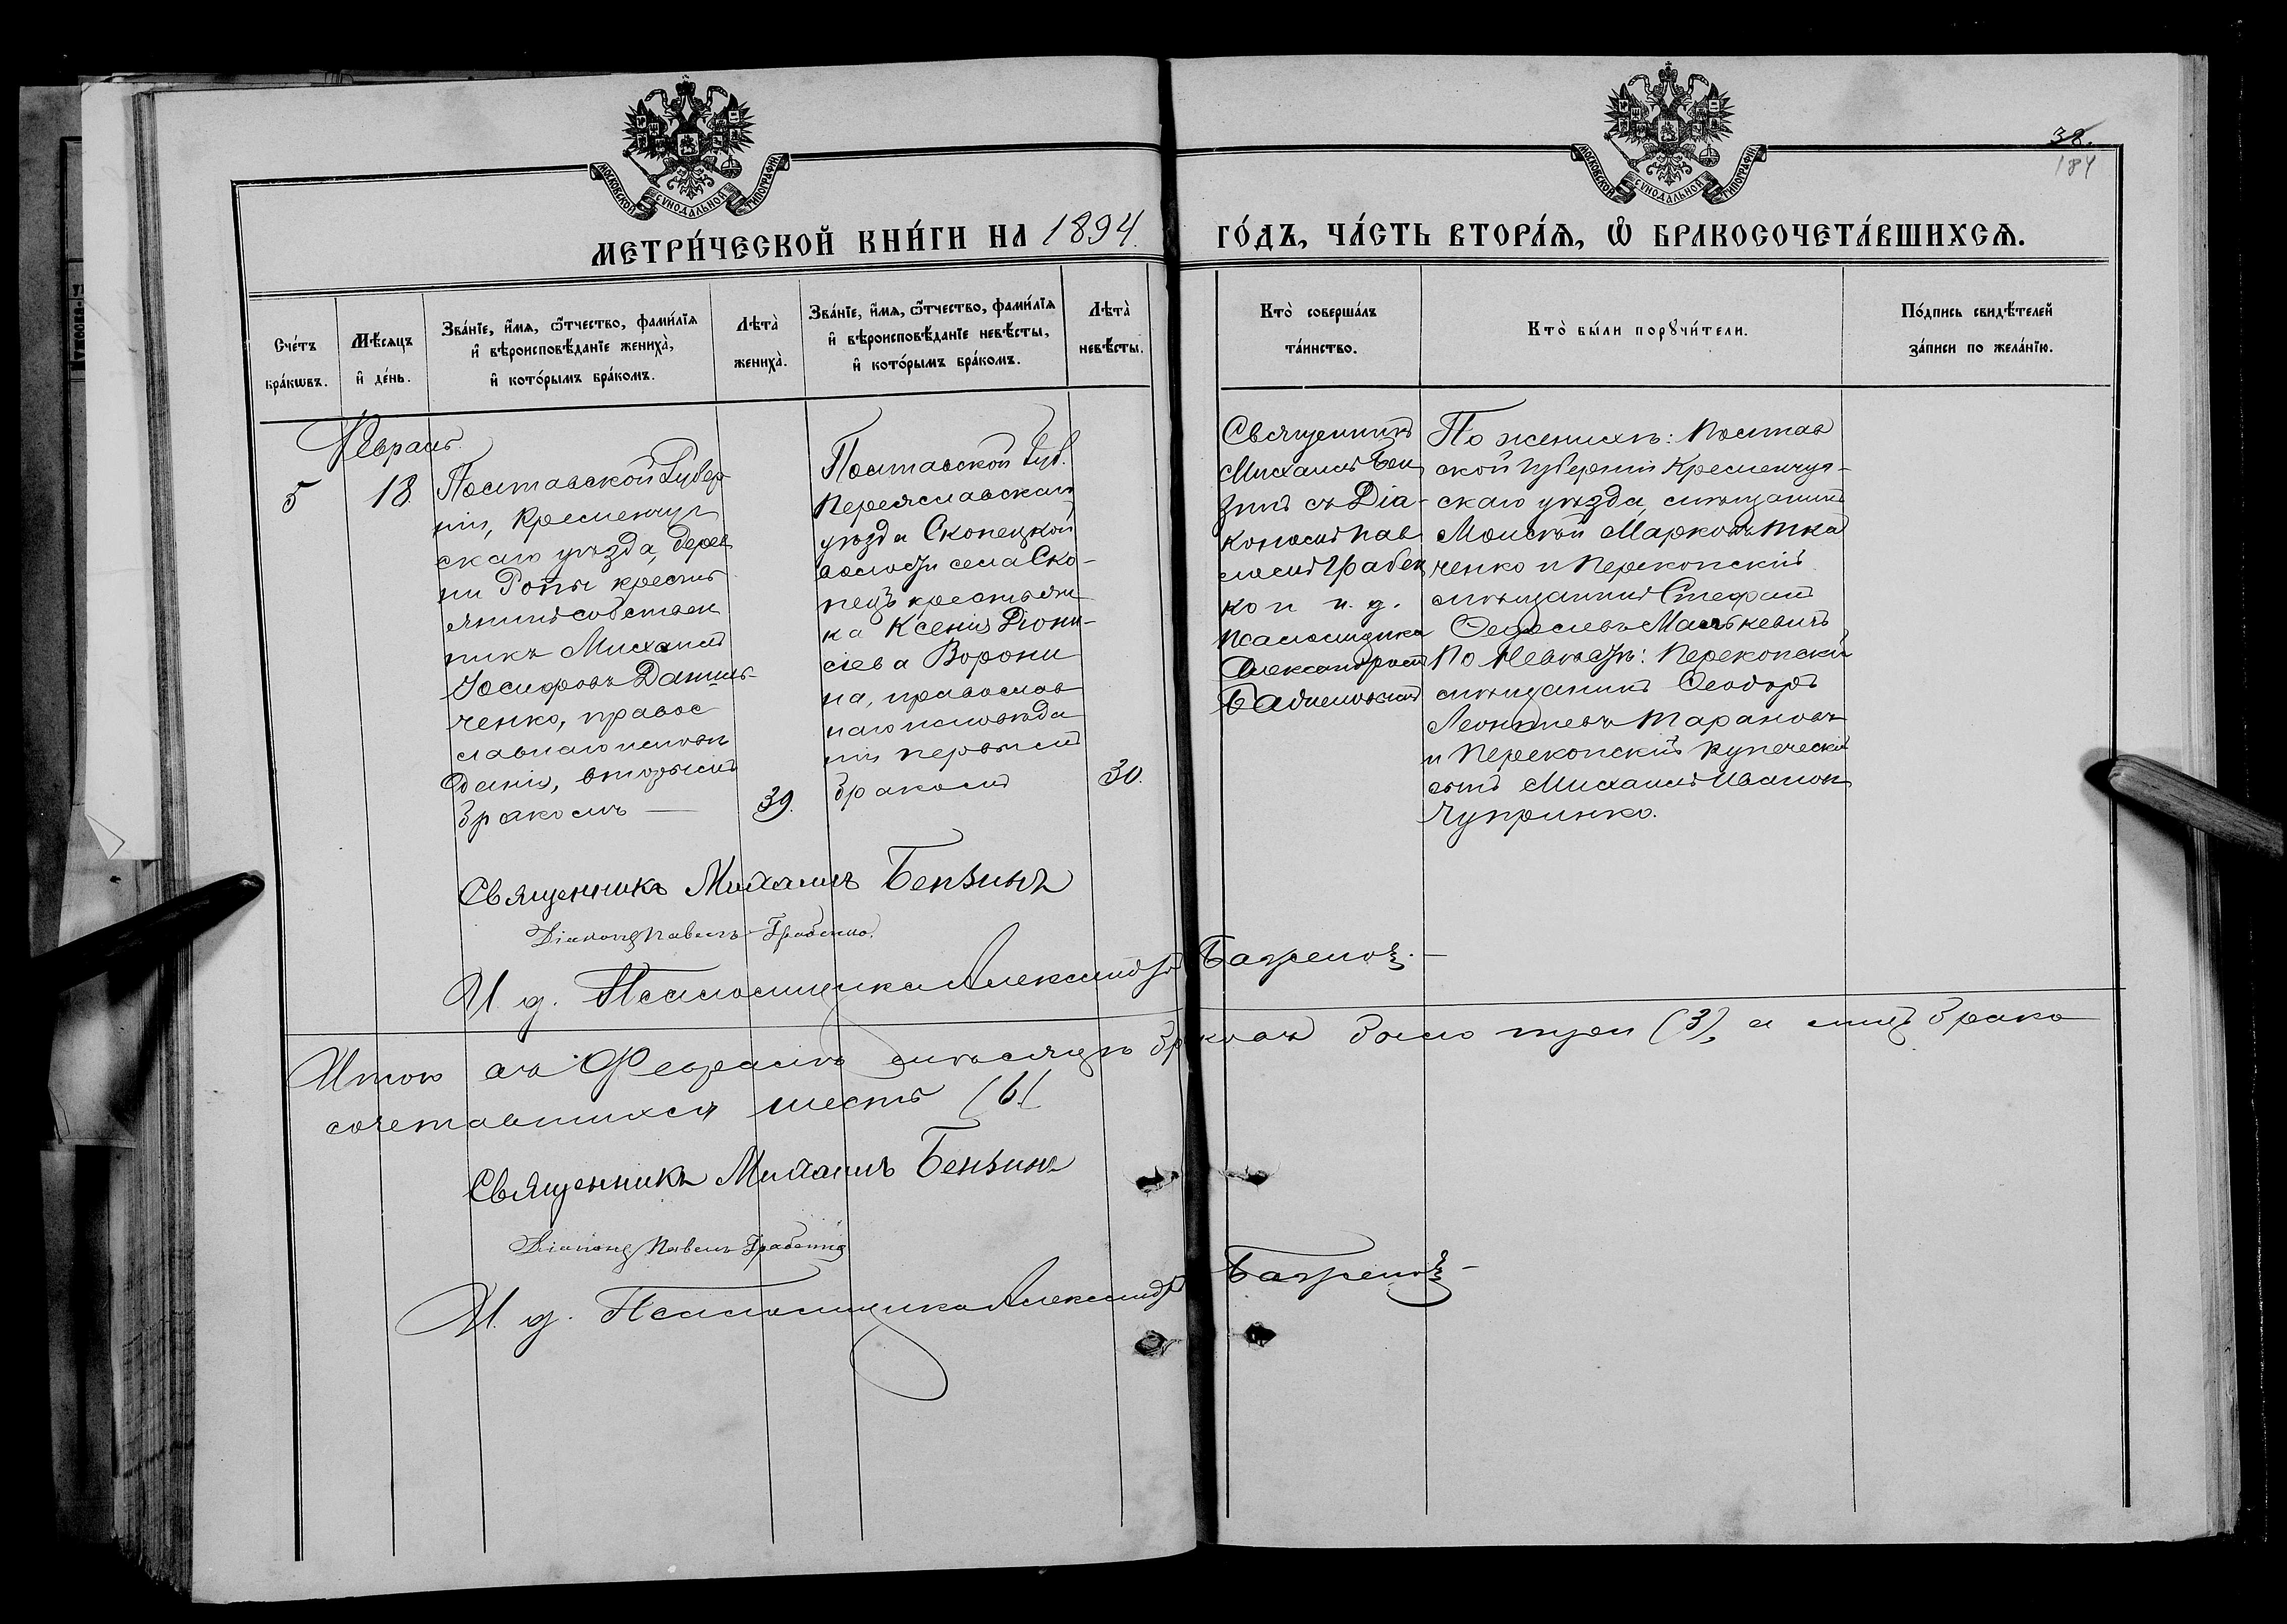 МОСКОВСКОЙ СѴНОДАЛЬНОЙ ТИПОГРАФІИ
МОСКОВСКОЙ СѴНОДАЛЬНОЙ ТИПОГРАФІИ
38.
184
МЕТРИ́ЧЕСКОЙ КНИ́ГИ НА 1894. ГО́ДЪ, ЧА́СТЬ ВТОРА́Ѧ, Ѡ҆ БРАКОСОЧЕТА́ВШИХСѦ.
Сче́тъ
бра́кѡвъ.
Мѣ́сяцъ
и҆ де́нь.
Зва́нїе, и҆́мѧ, ѻ҆́тчество, фами́лїѧ
и҆ вѣроисповѣ́данїе жениха̀,
и҆ кото́рымъ бра́комъ.
Лѣта̀
жениха̀.
Зва́нїе, и҆́мѧ, ѻ҆́тчество, фами́лїѧ
и҆ вѣроисповѣ́данїе невѣ́сты,
и҆ кото́рымъ бра́комъ.
Лѣта̀
невѣ́сты.
Кто̀ соверша́лъ
та́инство.
Кто̀ бы́ли порꙋчи́тели.
По́дпись свидѣ́телей
за́писи по жела́нїю.
Февраль.
5
18.
Полтавской Губер
ніи, Кременчуг
скаго уѣзда, дерев
ни крестья
янинъ собствен
никъ Михаилъ
Іосифовъ Даниль-
ченко, правос
лавнаго исповѣ
данія, вторымъ
бракомъ —
39.
Полтавской Губ.
Переяславскаго
уѣзда Скопецкой
волости села Ско-
пецъ крестьян
ка Ксенія Діони-
сіева Ворони
на, православ
наго исповѣда
нія первымъ
бракомъ
30.
Священникъ
Михаилъ Бен
зинъ съ Діа-
кономъ Пав
ломъ Грабен
ко и и. д.
Псаломщика
Александромъ
По женихѣ: Полтав
ской губерніи Кременчуг-
скаго уѣзда, мѣщанинъ
Моисей Марковъ Тка
ченко и Перекопскій
мѣщанинъ Стефанъ
Малькевичъ
По Невѣстѣ: Перекопскій
мѣщанинъ Ѳеодоръ
Леонтіевъ Тарановъ
и Перекопскій купеческій
сынъ Михаилъ Ивановъ
Чупринко.
Священникъ Михаилъ Бензинъ
Діаконъ Павелъ Грабенко.
И. д. Псаломщика Александръ
Итого въ Февралѣ мѣсяцѣ браковъ было три (3), а лицъ брако
сочетавшихся шесть (6)
Священникъ Михаилъ Бензинъ
Діаконъ Павелъ Грабенко
И. д. Псаломщика Александръ